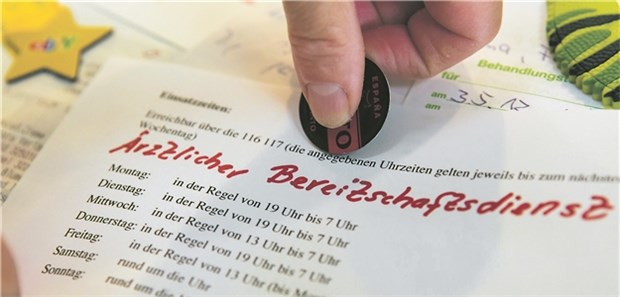 ebay
für Behandlungs
am 3.5.12
am
ESPAÑA
TO
Einsatzzeiten:
Erreichbar über die 116 117 (die angegebenen Uhrzeiten gelten jeweils bis zum nächsten
Wochentag)
Ärztlicher Bereitschaftsdienst
Montag: in der Regel von 19 Uhr bis 7 Uhr
Dienstag: in der Regel von 19 Uhr bis 7 Uhr
Mittwoch: in der Regel von 13 Uhr bis 7 Uhr
Donnerstag: in der Regel von 19 Uhr bis 7 Uhr
Freitag: in der Regel von 13 Uhr (bis Mo
Samstag: rund um die Uhr
Sonntag: rund um die Uhr